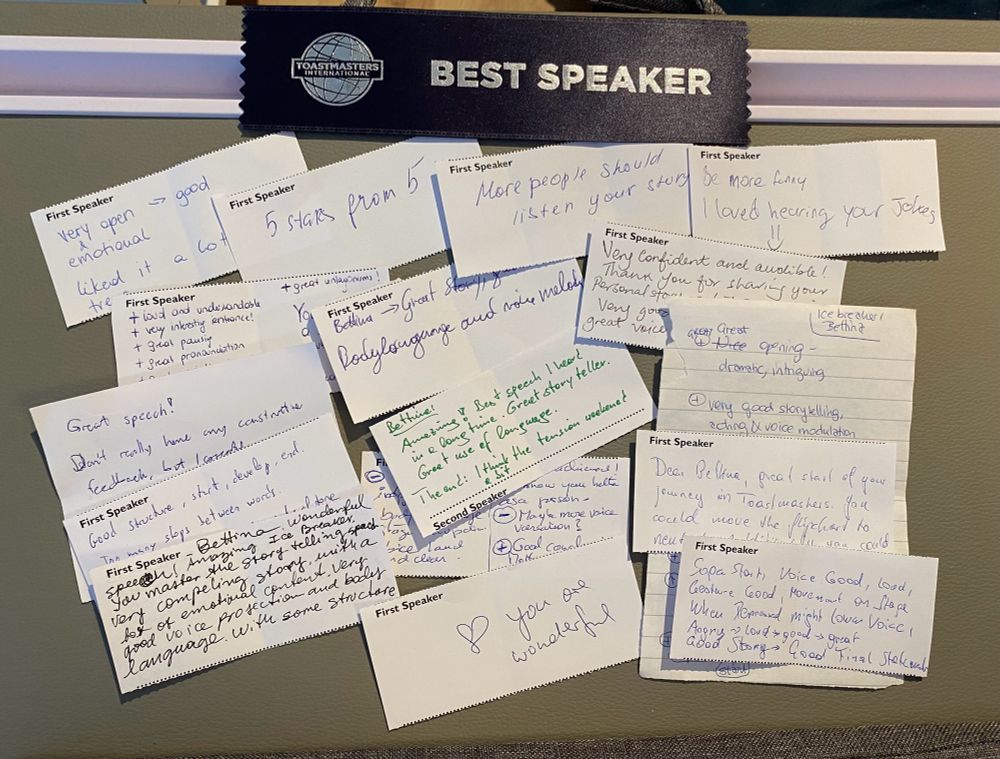 TOASTMASTERS
INTERNATIONAL
BEST SPEAKER
First Speaker
very open → good
& emotional
liked it a lot
First Speaker
5 stars from 5
First Speaker
More people should
listen your story
First Speaker
Be more funny
I loved hearing your jokes
⇓
First Speaker
Very confident and audible!
Thank you for sharing your
Personal
Very good
great voice
First Speaker
+ loud and understandable
+ very
+ great pausing
+ great pronunciation
+ great
First Speaker
Bettina → Great
Bodylanguage and voice melody
Bettina!
Amazing! Best speech I heard
in a long time. Great story teller.
Great use of language.
The end: I think the tension weakened
a bit
Second Speaker
Ice breaker/
Bettina
Great
⊕ opening -
dramatic, intriguing
⊕ very good storytelling,
acting & voice modulation
Great speech!
Don't really have any constructive
feedback, but I
First Speaker
Good structure, start, develop, end.
Too many stops between words.
First Speaker
Bettina - Wonderful
speech! Amazing Ice Breaker.
You master the story telling speech
very compelling story, with a
lot of emotional content. Very
good voice projection and body
language. With some structure
you
as a person -
⊖ Maybe more voice
variation?
⊕ Good
and clear
First Speaker
♡ you are
wonderful
First Speaker
Dear Bettina, great start of your
journey in Toastmasters. You
could move the flipchart to
you could
First Speaker
Start, Voice Good, Loud,
Gesture Good, Movement on Stage
When Depressed might lower Voice,
Angry → loud → good → great
Good Story → Good Final Statement
start